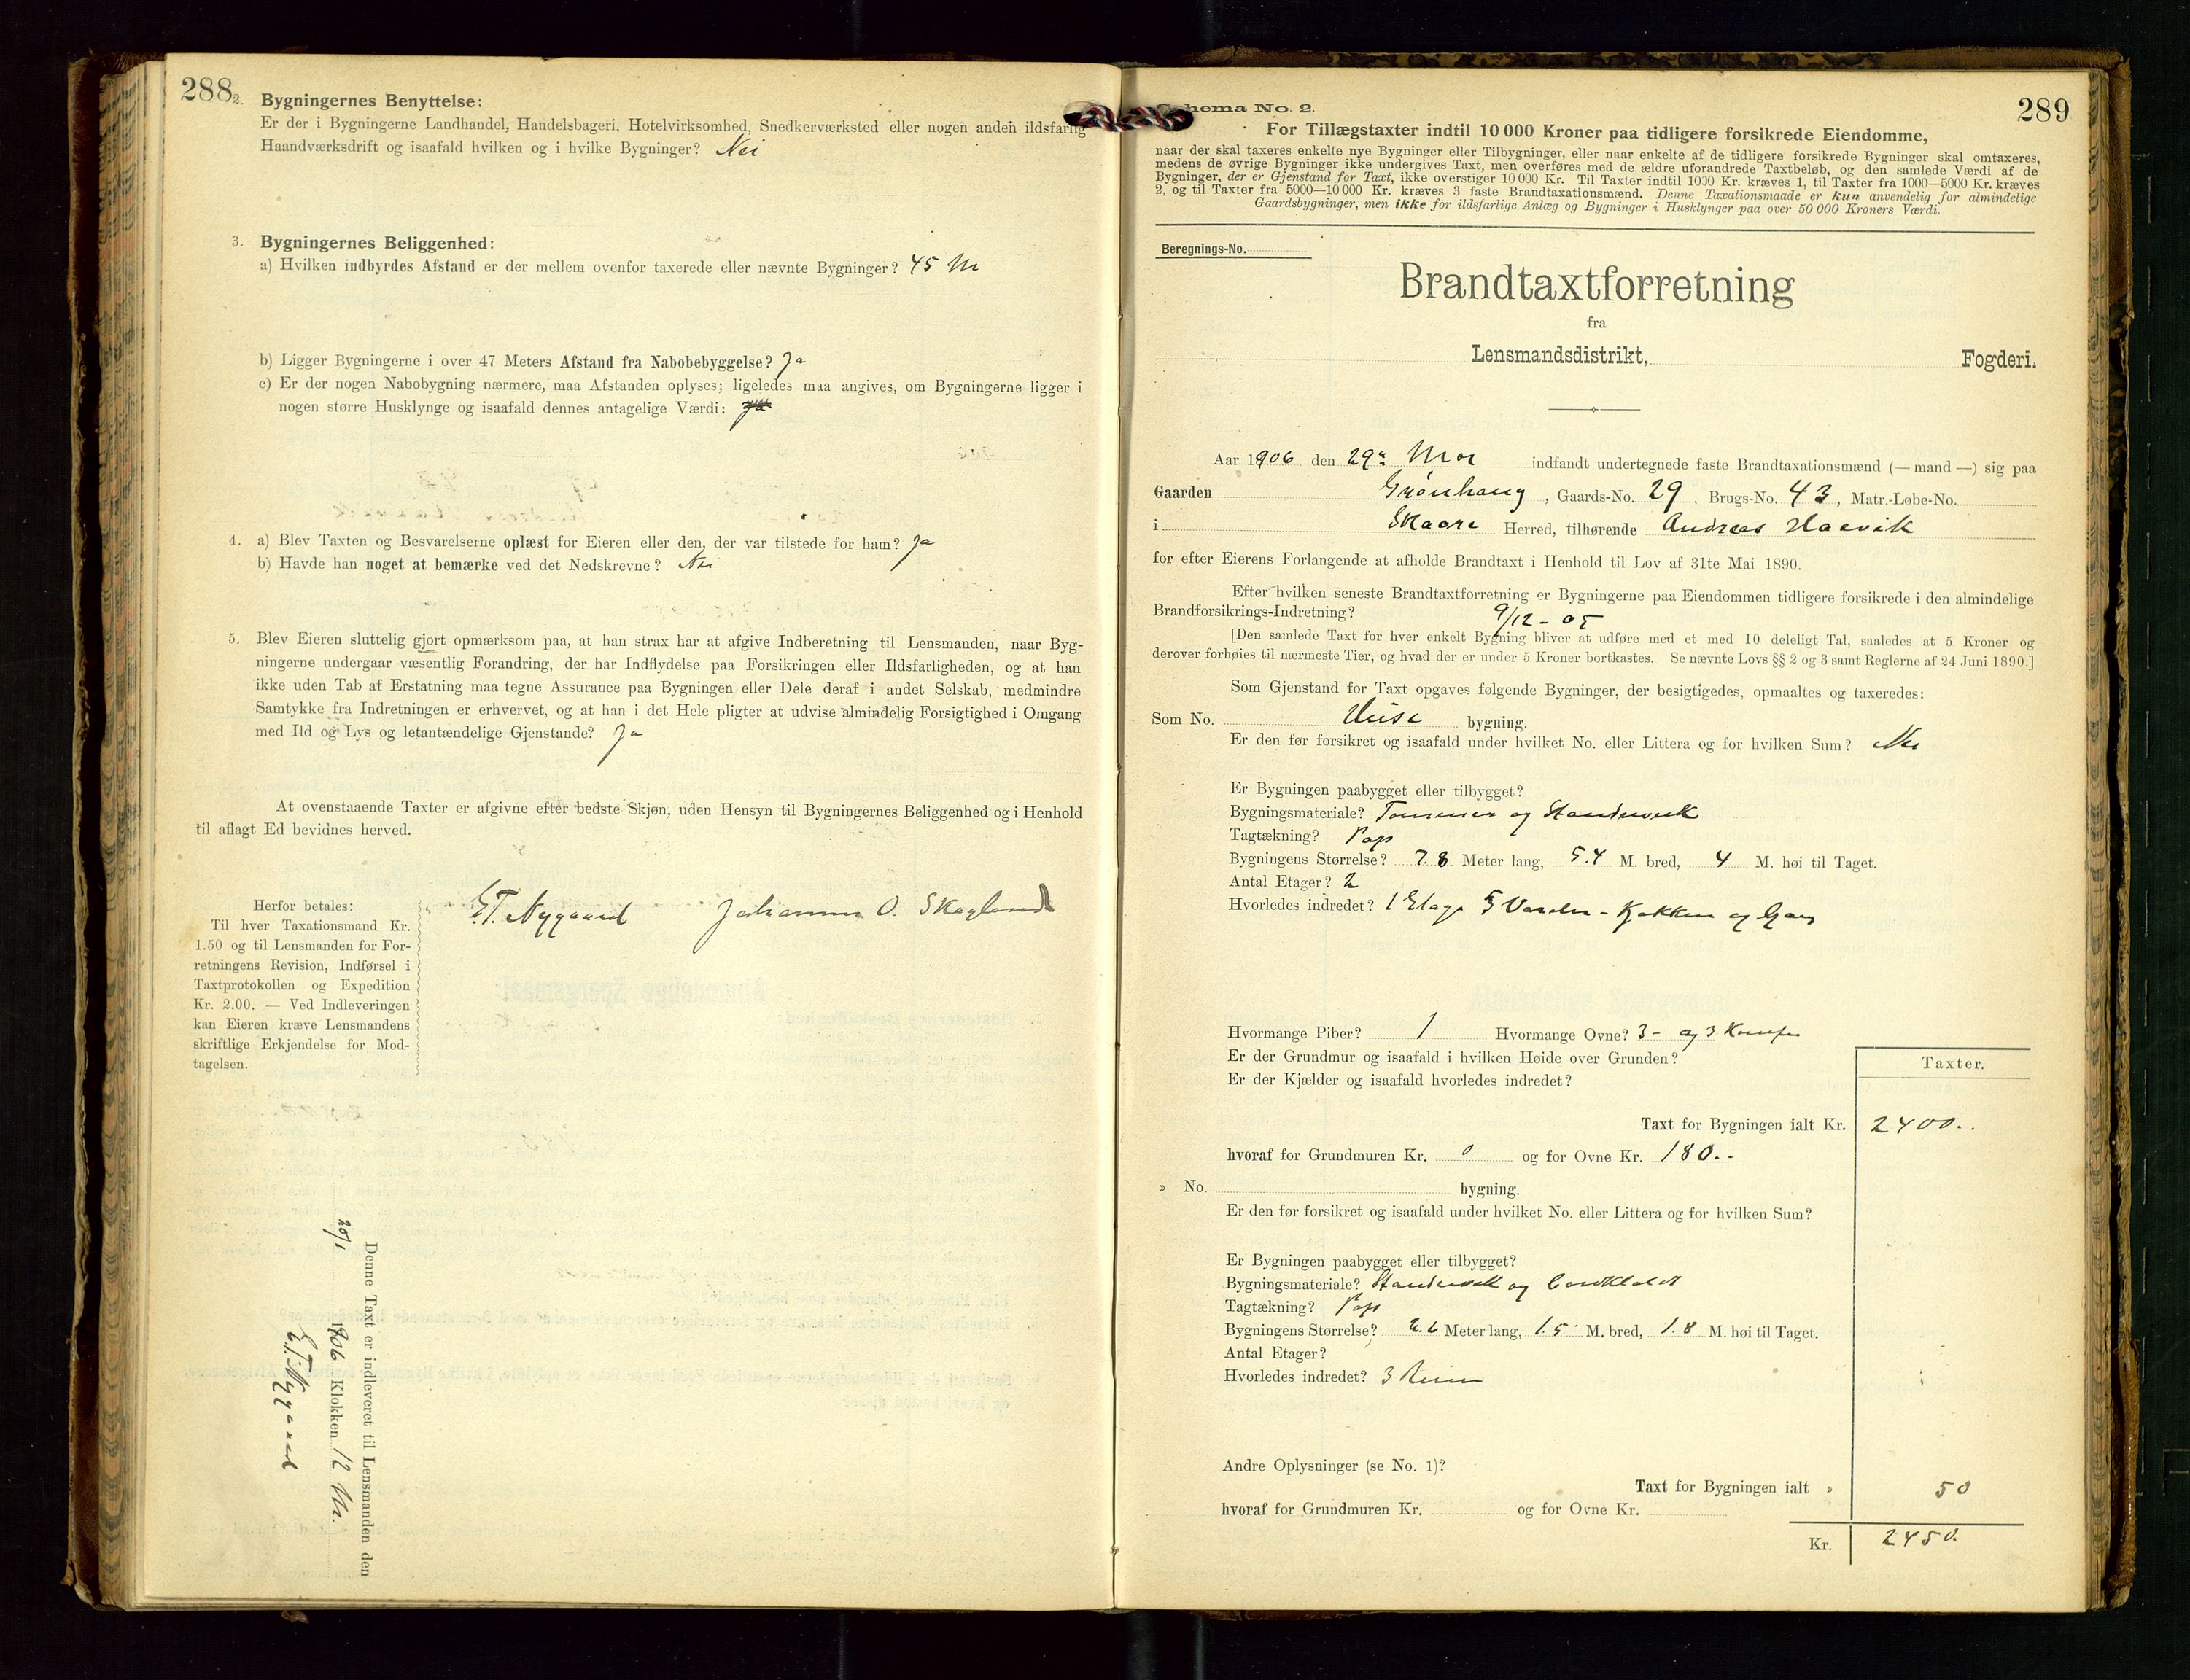 288
2. Bygningernes Benyttelse:
Er der i Bygningerne Landhandel, Handelsbageri, Hotelvirksomhed, Snedkerværksted eller nogen anden ildsfarlig
Haandværksdrift og isaafald hvilken og i hvilke Bygninger? Nei
3. Bygningernes Beliggenhed:
a) Hvilken indbyrdes Afstand er der mellem ovenfor taxerede eller nævnte Bygninger? 45 M
b) Ligger Bygningerne i over 47 Meters Afstand fra Nabobebyggelse? Ja
c) Er der nogen Nabobygning nærmere, maa Afstanden oplyses; ligeledes maa angives, om Bygningerne ligger i
nogen større Husklynge og isaafald dennes antagelige Værdi:
4. a) Blev Taxten og Besvarelserne oplæst for Eieren eller den, der var tilstede for ham? Ja
b) Havde han noget at bemærke ved det Nedskrevne? Nei
5. Blev Eieren sluttelig gjort opmærksom paa, at han strax har at afgive Indberetning til Lensmanden, naar Byg-
ningerne undergaar væsentlig Forandring, der har Indflydelse paa Forsikringen eller Ildsfarligheden, og at han
ikke uden Tab af Erstatning maa tegne Assurance paa Bygningen eller Dele deraf i andet Selskab, medmindre
Samtykke fra Indretningen er erhvervet, og at han i det Hele pligter at udvise almindelig Forsigtighed i Omgang
med Ild og Lys og letantændelige Gjenstande? Ja
At ovenstaaende Taxter er afgivne efter bedste Skjøn, uden Hensyn til Bygningernes Beliggenhed og i Henhold
til aflagt Ed bevidnes herved.
E.T. Nygaard Johannes O. Skagland
Herfor betales:
Til hver Taxationsmand Kr.
1.50 og til Lensmanden for For-
retningens Revision, Indførsel i
Taxtprotokollen og Expedition
Kr. 2.00. — Ved Indleveringen
kan Eieren kræve Lensmandens
skriftlige Erkjendelse for Mod-
tagelsen.
Denne Taxt er indleveret til Lensmanden den
20/1 1906 Klokken 12 M.
E.T. Nygaard
289
hema No. 2.
For Tillægstaxter indtil 10 000 Kroner paa tidligere forsikrede Eiendomme,
naar der skal taxeres enkelte nye Bygninger eller Tilbygninger, eller naar enkelte af de tidligere forsikrede Bygninger skal omtaxeres,
medens de øvrige Bygninger ikke undergives Taxt, men overføres med de ældre uforandrede Taxtbeløb, og den samlede Værdi af de
Bygninger, der er Gjenstand for Taxt, ikke overstiger 10 000 Kr. Til Taxter indtil 1000 Kr. kræves 1, til Taxter fra 1000—5000 Kr. kræves
2, og til Taxter fra 5000—10 000 Kr. kræves 3 faste Brandtaxationsmænd. Denne Taxationsmaade er kun anvendelig for almindelige
Gaardsbygninger, men ikke for ildsfarlige Anlæg og Bygninger i Husklynger paa over 50 000 Kroners Værdi.
Beregnings-No.
Brandtaxtforretning
fra
Lensmandsdistrikt, Fogderi.
Aar 1906 den 29de indfandt undertegnede faste Brandtaxationsmænd (— mand —) sig paa
Gaarden Grønhaug, Gaards-No. 29, Brugs-No. 43, Matr.-Løbe-No.
i Skaare Herred, tilhørende Andreas Haavik
for efter Eierens Forlangende at afholde Brandtaxt i Henhold til Lov af 31te Mai 1890.
Efter hvilken seneste Brandtaxtforretning er Bygningerne paa Eiendommen tidligere forsikrede i den almindelige
Brandforsikrings-Indretning? 9/12-05
[Den samlede Taxt for hver enkelt Bygning bliver at udføre med et med 10 deleligt Tal, saaledes at 5 Kroner og
derover forhøies til nærmeste Tier, og hvad der er under 5 Kroner bortkastes. Se nævnte Lovs §§ 2 og 3 samt Reglerne af 24 Juni 1890.]
Som Gjenstand for Taxt opgaves følgende Bygninger, der besigtigedes, opmaaltes og taxeredes:
Som No. bygning.
Er den før forsikret og isaafald under hvilket No. eller Littera og for hvilken Sum? Nei
Er Bygningen paabygget eller tilbygget?
Bygningsmateriale? Tømmer og Standerverk
Tagtækning? Pap
Bygningens Størrelse? 7.8 Meter lang, 5.4 M. bred, 4 M. høi til Taget.
Antal Etager? 2
Hvorledes indredet? 1 Etage Kjøkken og Gang
Hvormange Piber? 1 Hvormange Ovne? 3 - og 3
Er der Grundmur og isaafald i hvilken Høide over Grunden?
Er der Kjælder og isaafald hvorledes indredet?
Taxter.
Taxt for Bygningen ialt Kr. 2400..
hvoraf for Grundmuren Kr. 0 og for Ovne Kr. 180.-
» No. bygning.
Er den før forsikret og isaafald under hvilket No. eller Littera og for hvilken Sum?
Er Bygningen paabygget eller tilbygget?
Bygningsmateriale? Standerverk og Bordklædt
Tagtækning? Pap
Bygningens Størrelse? 2.6 Meter lang, 1.5 M. bred, 1.8 M. høi til Taget.
Antal Etager?
Hvorledes indredet? 3 Rum
Andre Oplysninger (se No. 1)?
Taxt for Bygningen ialt » 50
hvoraf for Grundmuren Kr. og for Ovne Kr.
Kr. 2450.